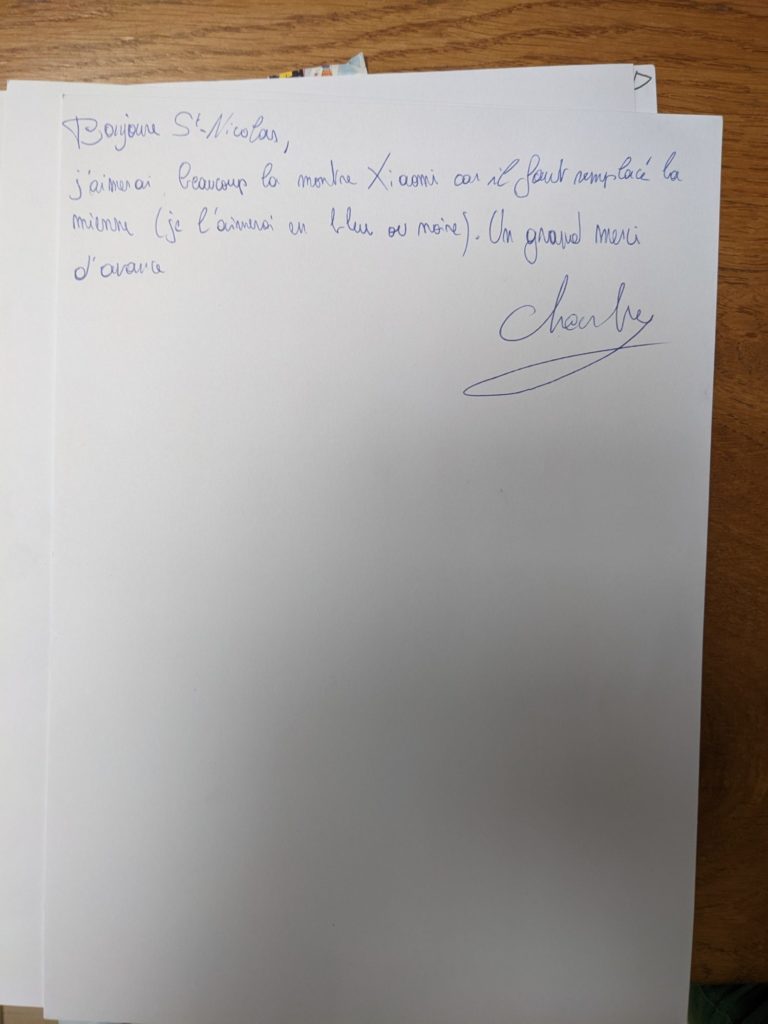 Bonjoure St-Nicolas,
j'aimerai beaucoup la montre Xiaomi car il faut remplacé la
mienne (je l'aimerai en bleu ou noire). Un grand merci
d'avance